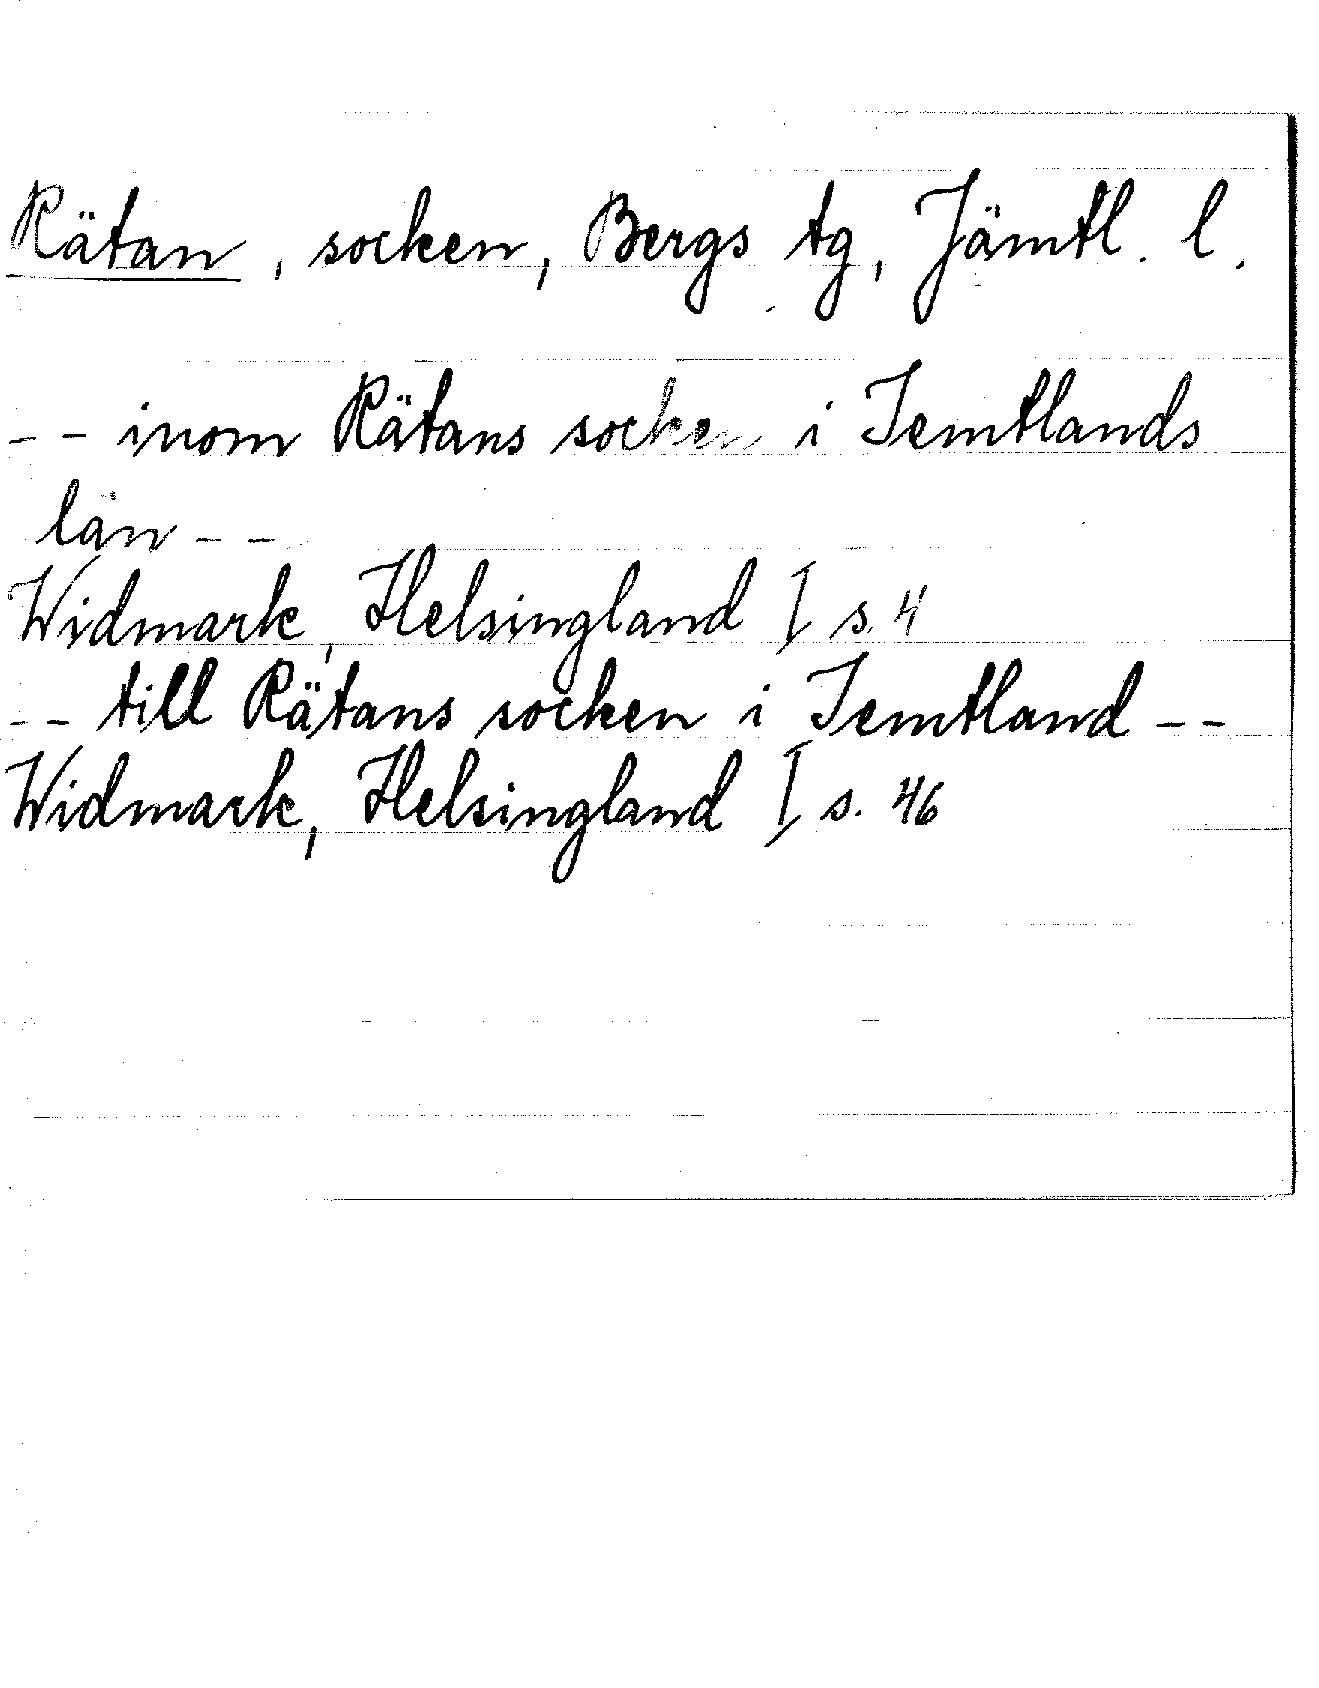 Rätan, socken, Bergs tg, Jämtl. l.
-- inom Rätans socken i Jemtlands
län --
Widmark, Helsingland I s. 4
-- till Rätans socken i Jemtland --
Widmark, Helsingland I s. 46